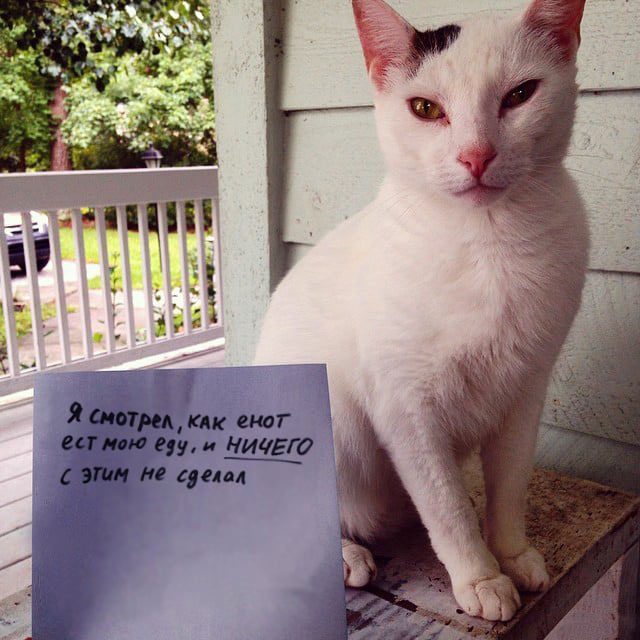 Я смотрел, как енот
ест мою еду, и НИЧЕГО
с этим не сделал